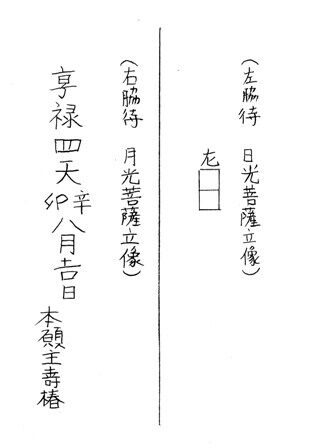 (左脇待 日光菩薩立像)
左□□
(右脇待 月光菩薩立像)
享禄四天辛卯八月吉日
本願主寿椿